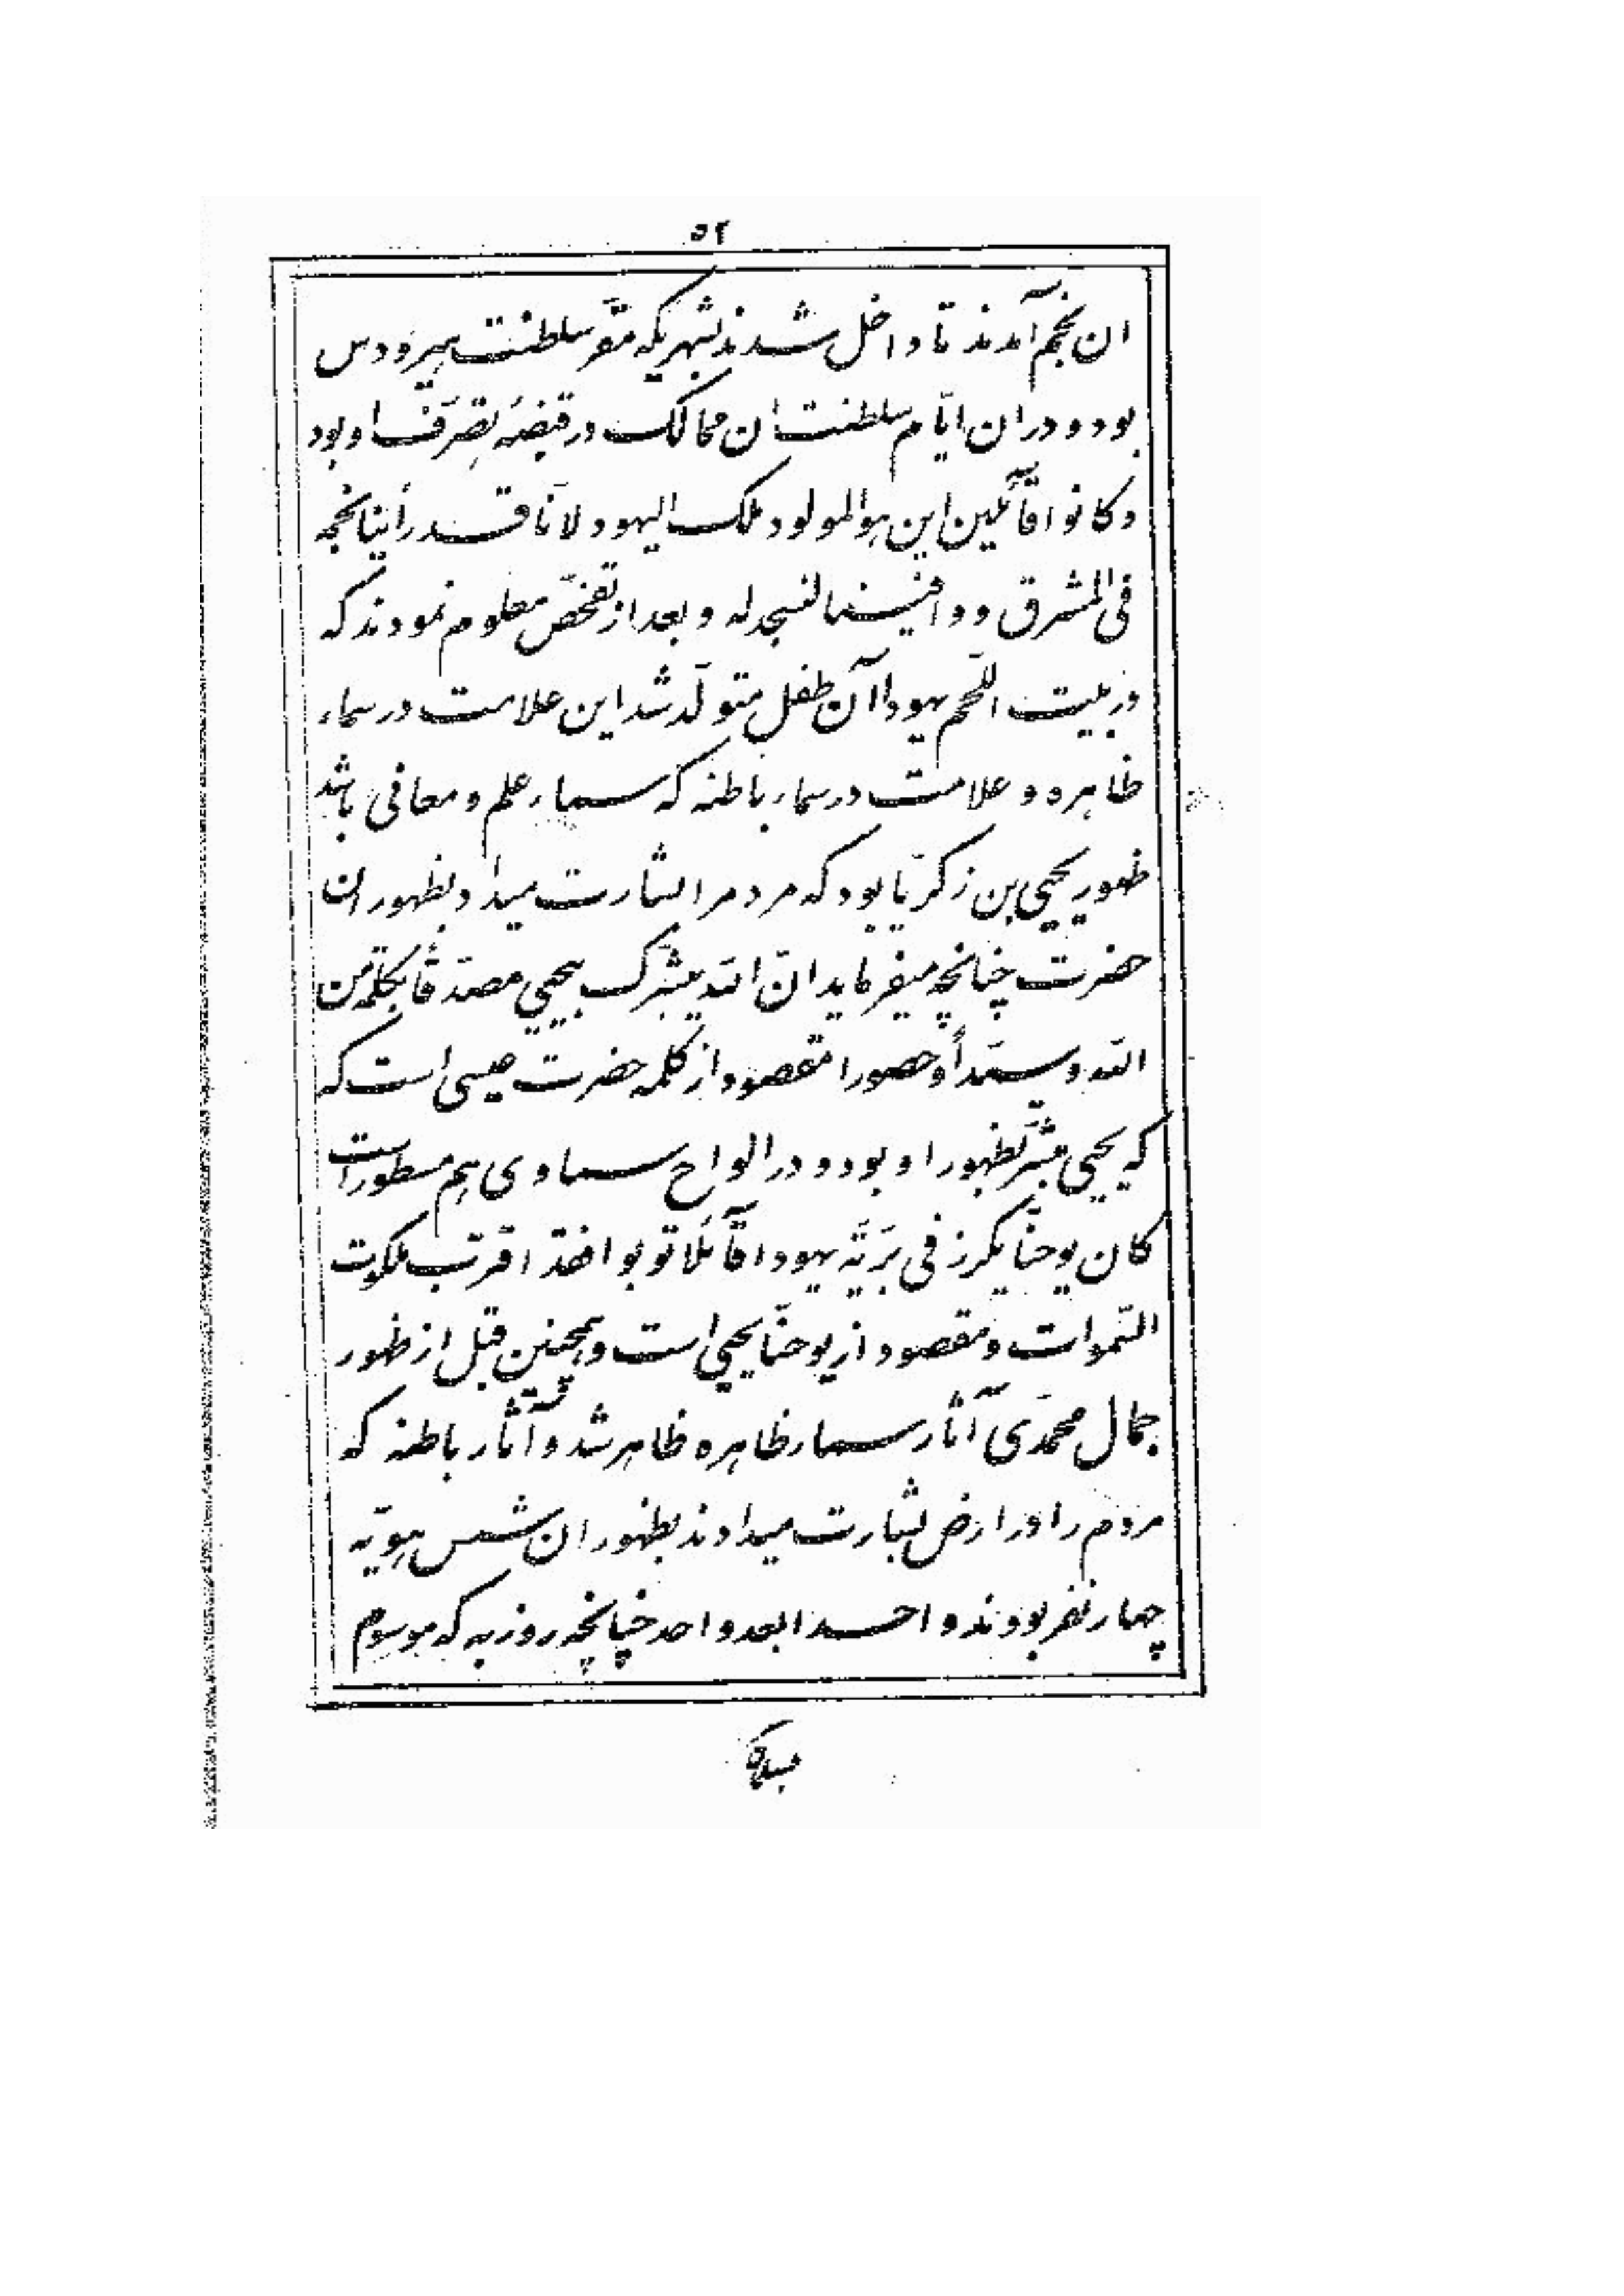 ۵۲
ان نجم آمدند تا داخل شدند بشهریکه مقرّ سلطنت هیرودس
بود و در ان ایّام سلطنت ان ممالک در قبضه تصرّف او بود
و کانوا قآئلین این هو المولود ملک الیهود لانّا قد رأینا نجمه
فی المشرق و وافینا لنسجد له و بعد از تفحّص معلوم نمودند که
در بیت اللّحم یهودا آن طفل متولّد شد این علامت در سماء
ظاهره و علامت در سماء باطنه که سماء علم و معانی باشد
ظهور یحیی بن زکریّا بود که مردم را بشارت میداد بظهور ان
حضرت چنانچه میفرماید انّ اللّه یبشّرک بیحیی مصدّقاً بکلمة من
اللّه و سیّداً و حصورا مقصود از کلمه حضرت عیسی است که
که یحیی مبشّر بظهور او بود و در الواح سماوی هم مسطور است
کان یوحنّا یکرز فی بریّة یهودا قآئلا توبوا فقد اقترب ملکوت
السّموات و مقصود از یوحنّا یحیی است و همچنین قبل از ظهور
جمال محمّدی آثار سماء ظاهره ظاهر شد و آثار باطنه که
مردم را در ارض بشارت میدادند بظهور ان شمس هویّه
چهار نفر بودند واحدا بعد واحد چنانچه روز به که موسوم